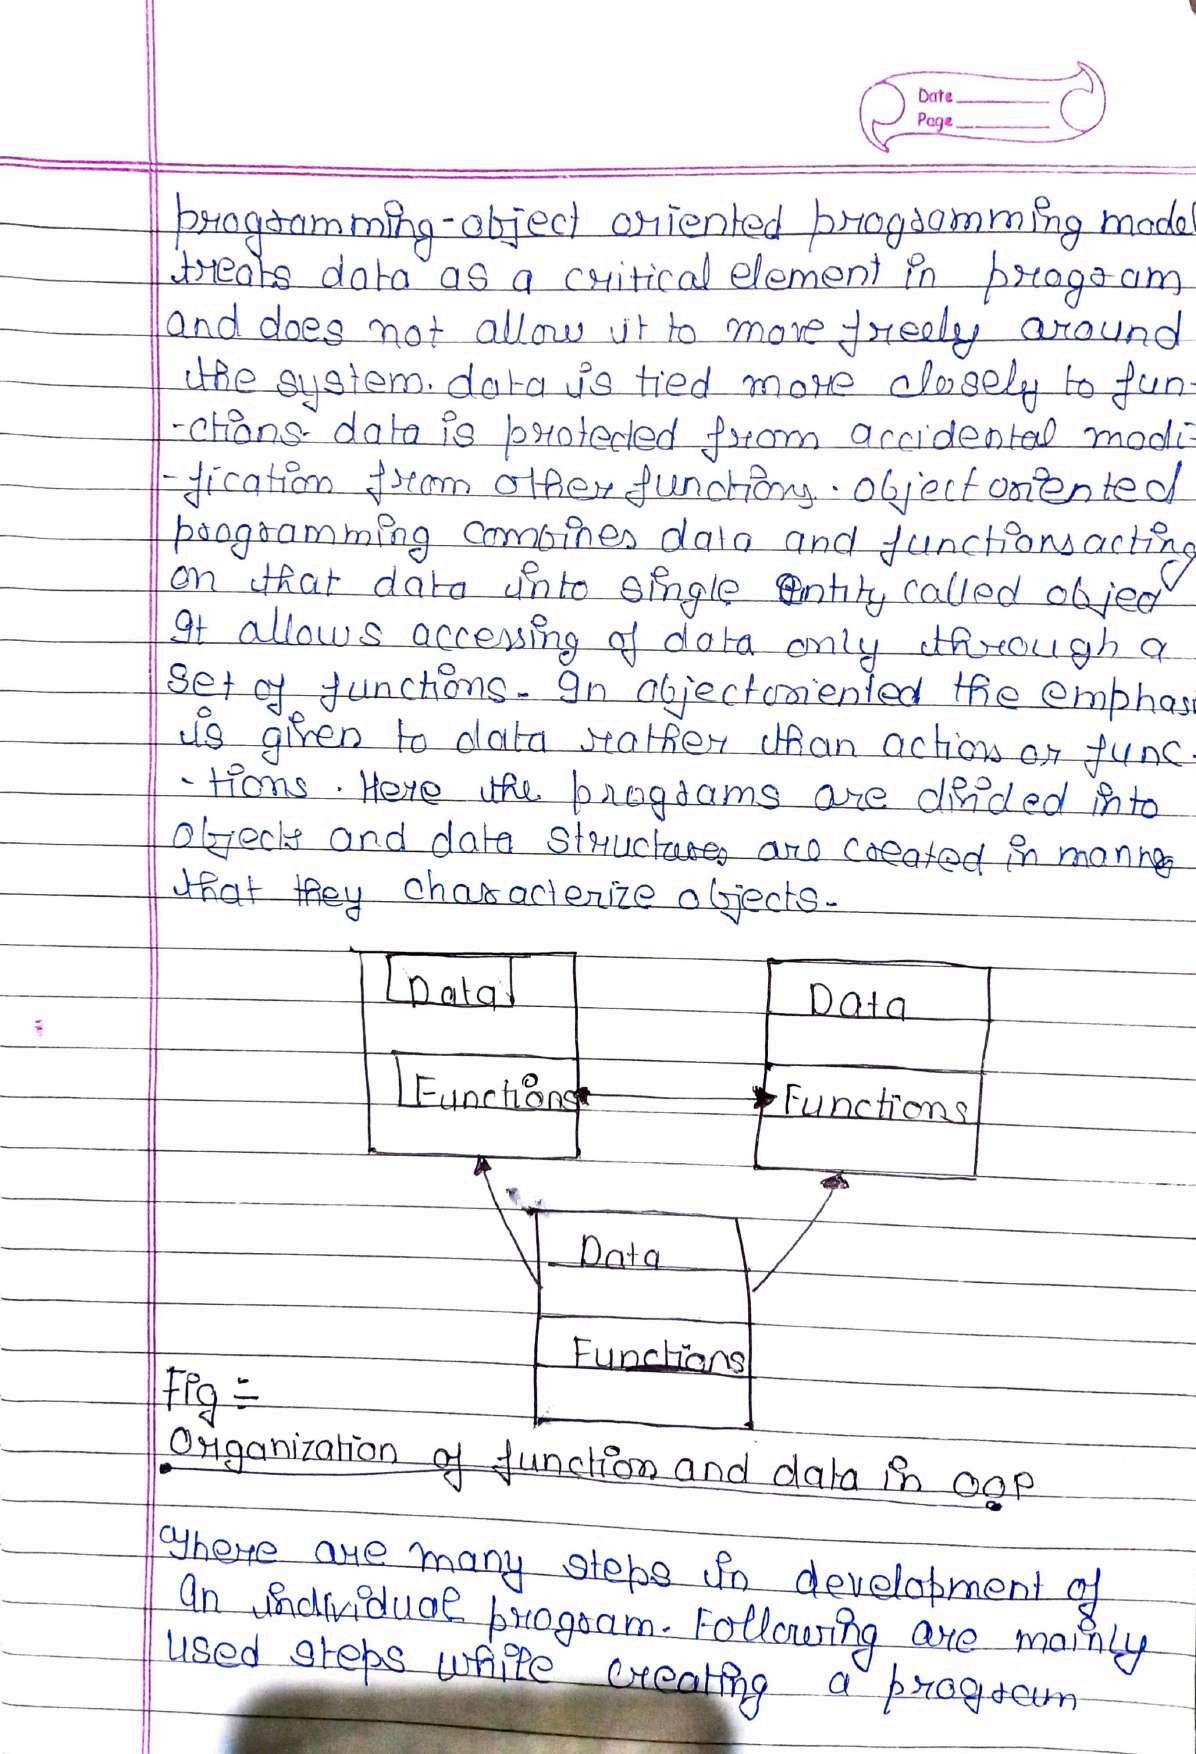 Date
Page
programming-object oriented programming model
treats data as a critical element in program
and does not allow it to move freely around
the system. data is tied more closely to fun-
-ctions. data is protected from accidental modi-
-fication from other functions. object oriented
programming combines data and functions acting
on that data into single entity called object
It allows accessing of data only through a
set of functions. In object oriented the emphasi
is given to data rather than action or func-
-tions. Here the programs are divided into
objects and data structures are created in manner
that they characterize objects.
Data
Data
Functions
Functions
Data
Functions
Fig =
Organization of function and data in OOP
There are many steps in development of
an individual program. Following are mainly
used steps while creating a program